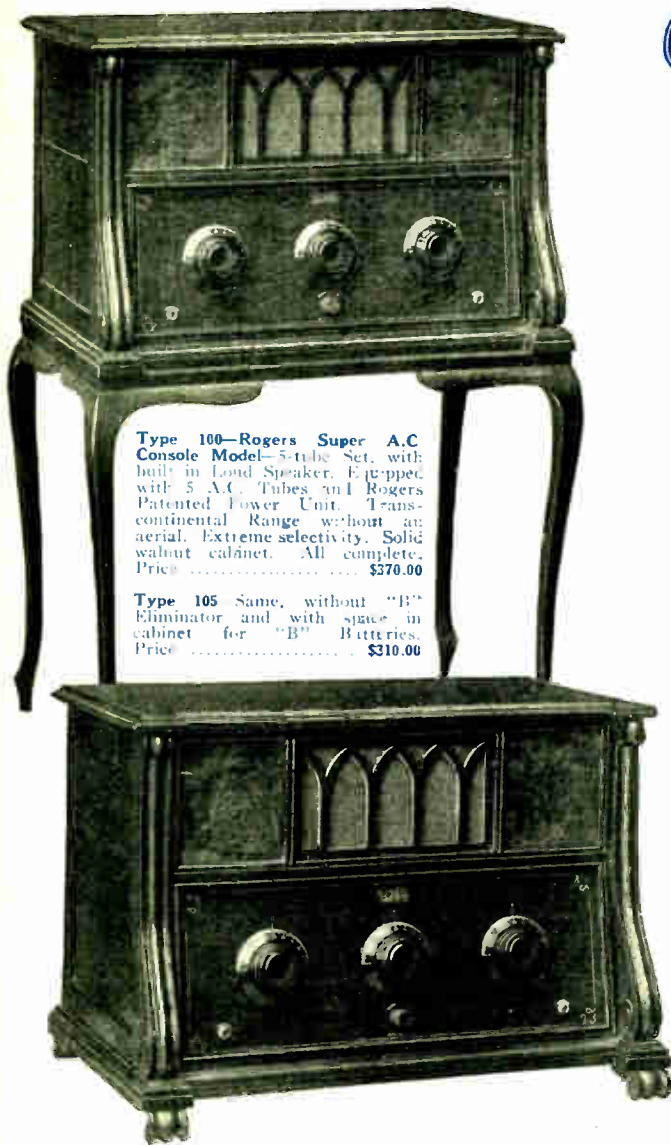 Type 100—Rogers Super A.C
Console Model—5-tube Set, with
built in Loud Speaker. Equipped
with 5 A.C. Tubes and Rogers
Patented Power Unit. Trans-
continental Range without an
aerial. Extreme selectivity. Solid
walnut cabinet. All complete.
Price .................... $370.00
Type 105 Same, without "B"
Eliminator and with space in
cabinet for "B" Batteries.
Price .................... $310.00